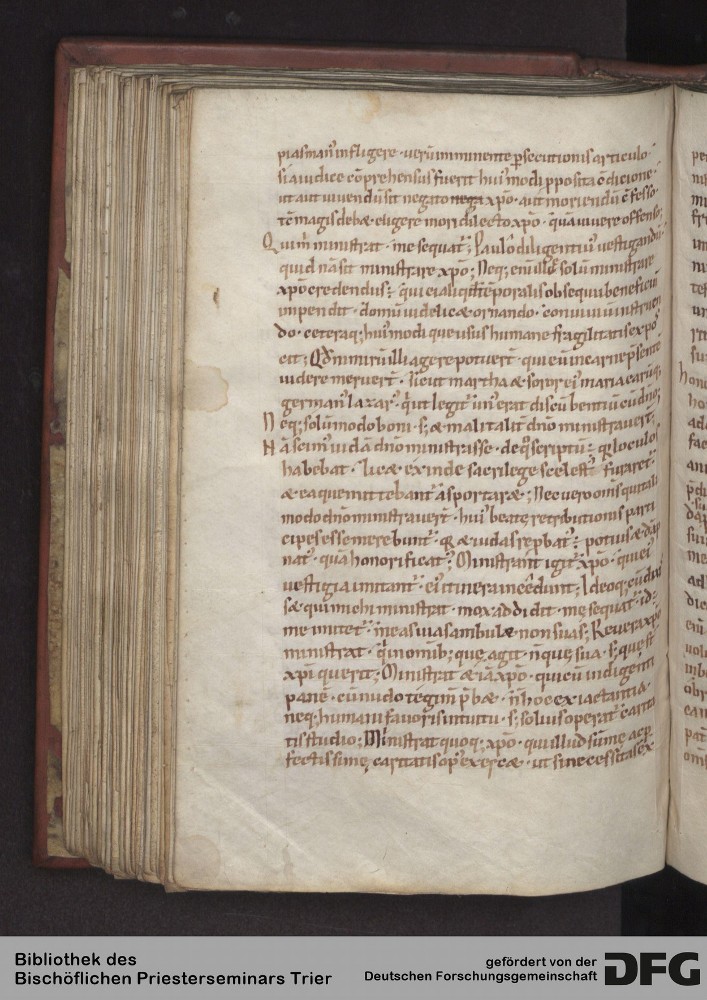 pias man᷒ infligere · verū imminente ꝑsecutionis articulo ·
si a iudice cōprehensus fuerit hui᷒modi ꝓposita ē dicione ·
ut aut vivendū sit negato xp̄o · aut moriendū ē fesso ·
magis debet eligere mori dilecto xp̄o · quā vivere offenso;
Qui m̄ ministrat · me sequat᷑; Paulo diligenti᷒ vestigandū
quid nā sit ministrare xp̄o; Neq; eni᷒ ille solū ministrare
xp̄o credendus ē · qui ei aliqd tēporalis obsequii beneficiū
impendit · domū videlicet ornando · convivium instruen
do · ceteraq; hui᷒modi que usus humane fragilitatis expo
cit; Qd̄ nimirū illi agere potuert̄ · qui eū in carne p̄sente
videre meruert̄ · sicut martha et soror ei᷒ maria earūq;
german᷒ lazar᷒ · qui ut legit᷑ un᷒ erat discūbentiū cū dn̄o;
Neq; solūmodo boni · s; et mali talit᷑ dn̄o ministravert̄;
Nā scim᷒ iudā dn̄o ministrasse · de quo scriptū ē · quia loculos
habebat · licet exinde sacrilege scelest᷒ furaret᷑
et ea que mittebant᷑ asportaret; Nec vero om̄s qui tali
modo dn̄o ministravert̄ · hui᷒ beatę retributionis parti
cipes esse meruerunt · quia et iudas reprobat᷒ ē potius et dāp
nat᷒ · quā honorificat᷒; Ministrant igit᷑ xp̄o · qui ei᷒
vestigia imitant᷑ · ei᷒ itinera incedunt; Ideoq; cū dixis
set qui michi ministrat · mox addidit · me sequat᷑ · id ē
me imitet᷑ · in meas vias ambulet non suas; Revera xp̄o
ministrat · qui in omnib; quę agit · n̄ que sua · s; quę st̄
xp̄i querit; Ministrat etiā xp̄o · qui cū indigenti
panē · cū nudo tegim̄ p̄bet · n̄ hoc ex iactantia ·
neq; humani favoris intuitu · s; solius operat᷑ cāritā
tis studio; Ministrat quoq; xp̄o · qui illud sūmę ac ꝑ
fectissimę caritatis op᷒ exercet · ut si necessitas ex
Bibliothek des
Bischöflichen Priesterseminars Trier
gefördert von der
Deutschen Forschungsgemeinschaft
DFG